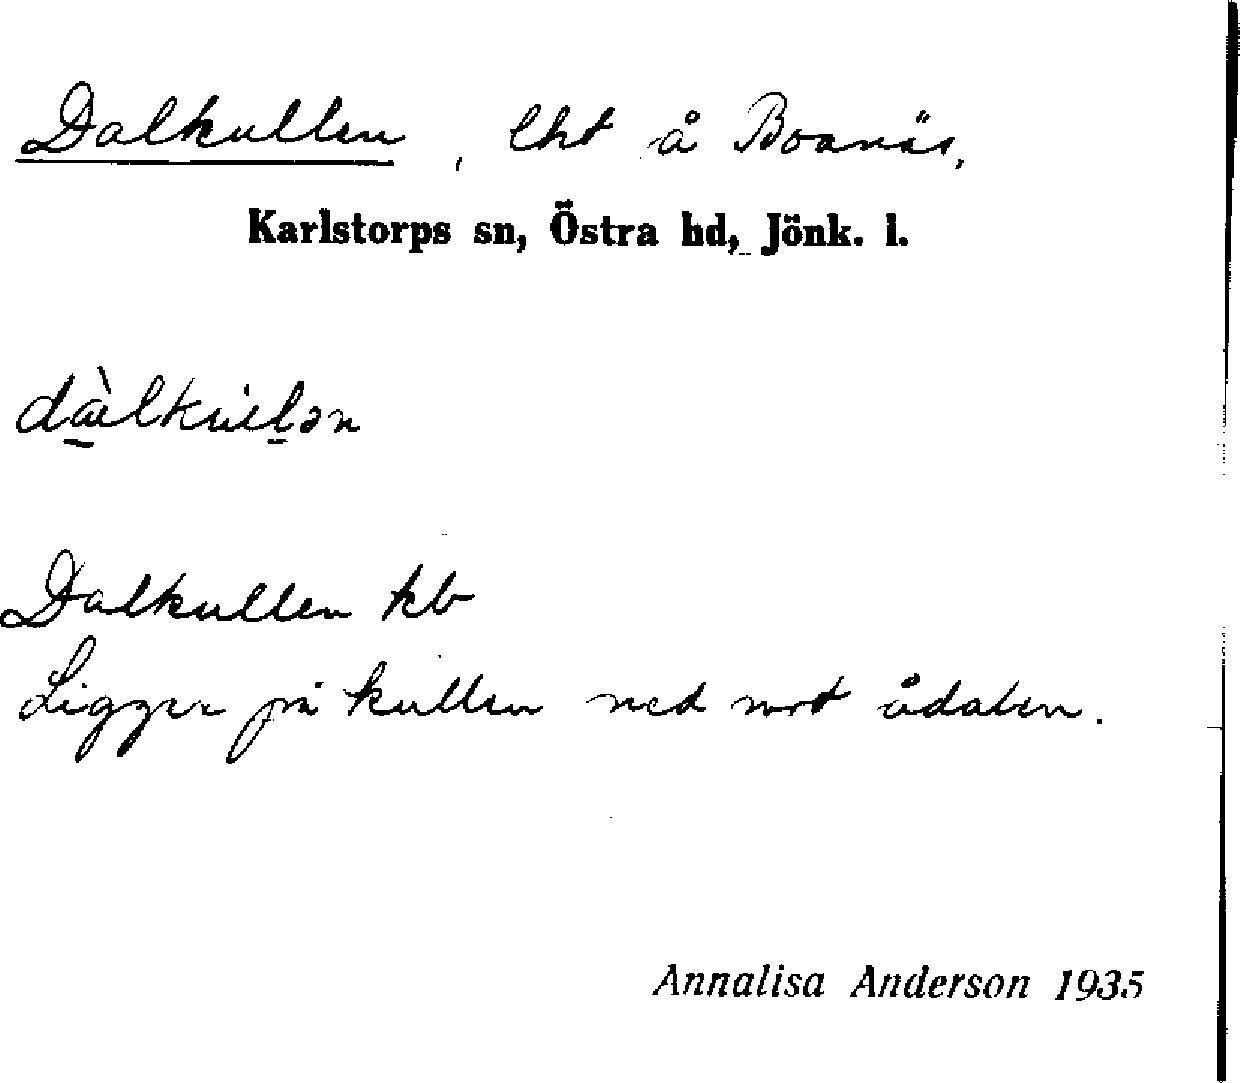 Dalkullen, lht å Boanäs,
Karlstorps sn, Östra hd, Jönk. l.
Dalkullen kb
Ligger på kullen ned mot ådalen.
Annalisa Anderson 1935